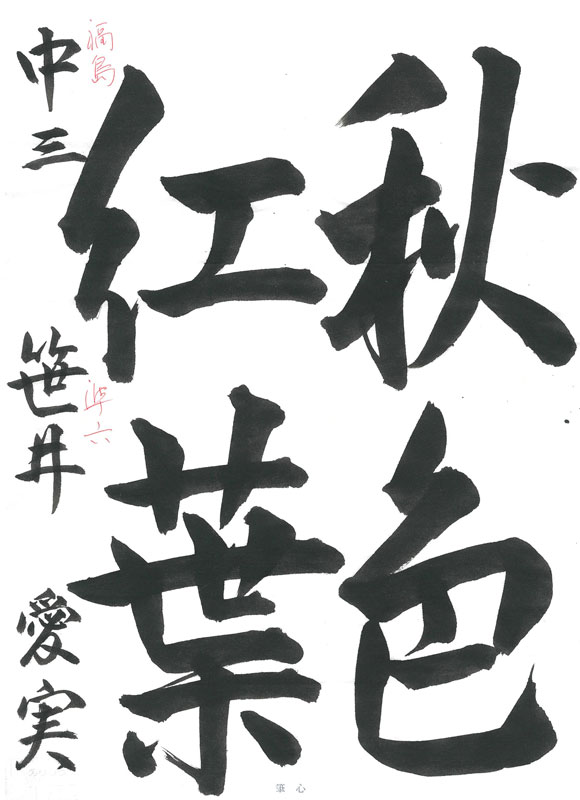 秋色
紅葉
中三 笹井 愛実
福島
準六
筆心